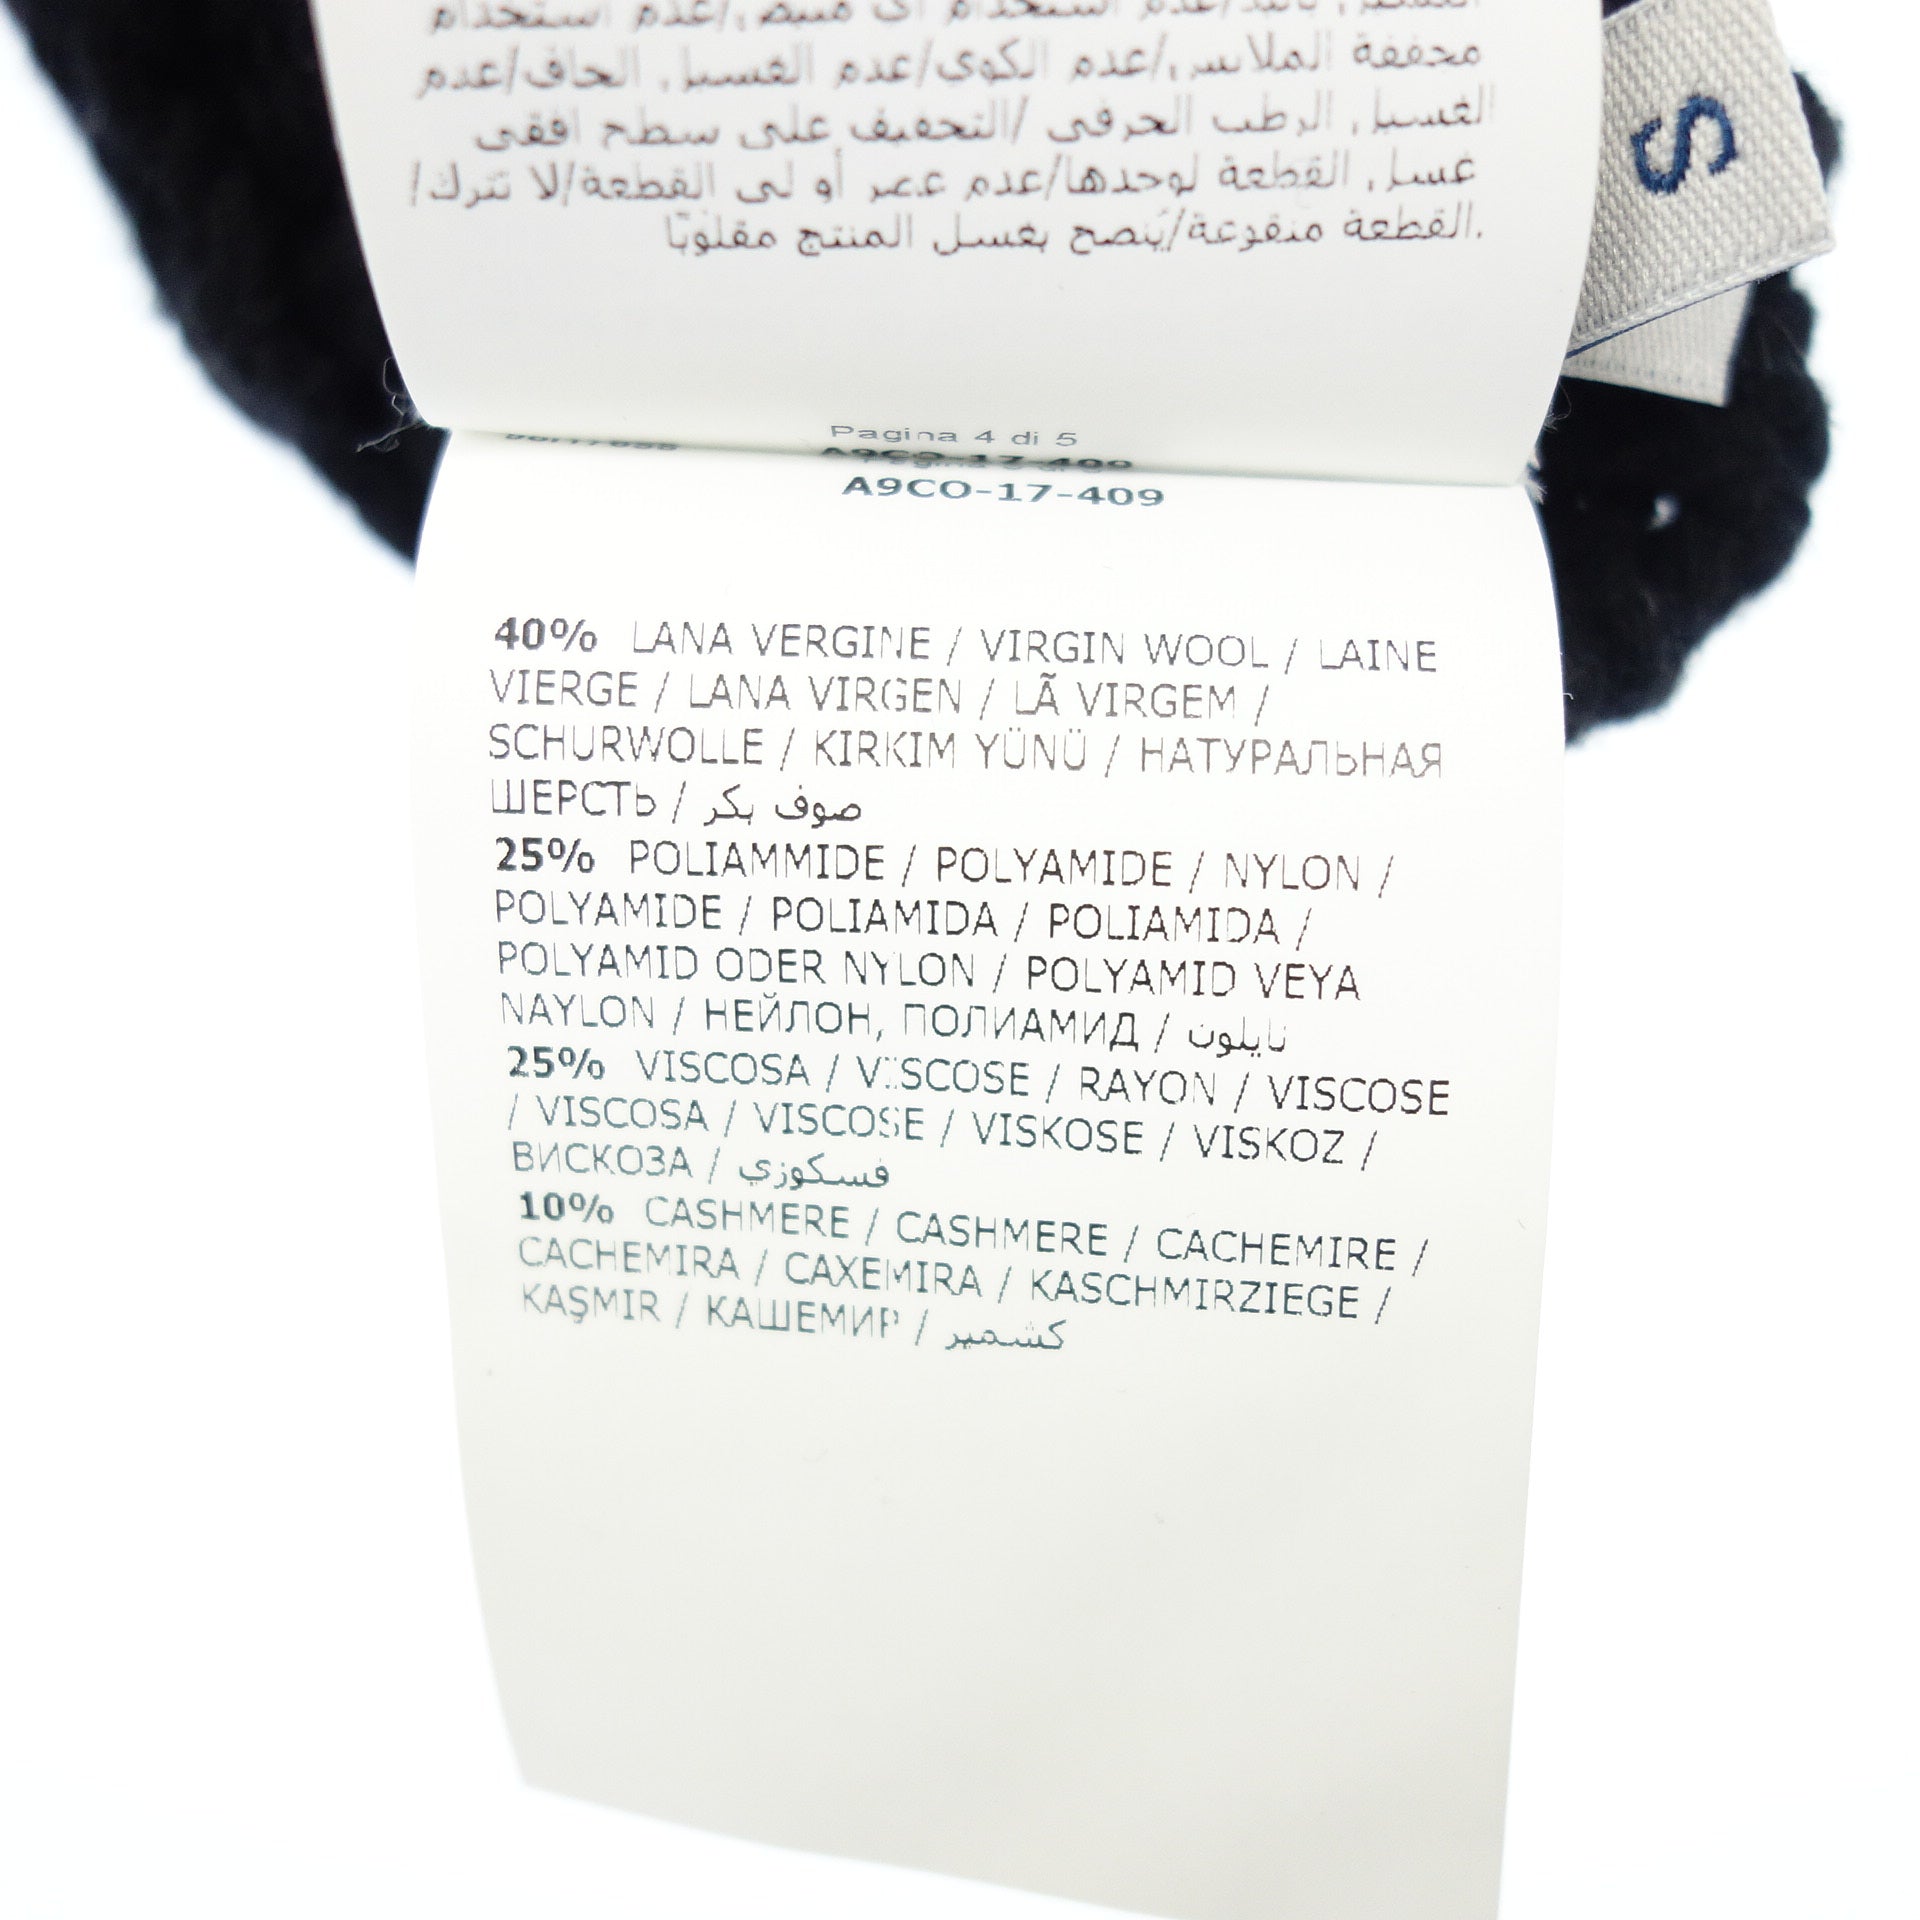 مجففة الملابس/عدم الكوي/عدم الغسيل الجاف/عدم
الغسيل الرطب الحرفي /التجفيف على سطح افقي
غسل القطعة لوحدها/عدم عصر أو لي القطعة/لا تترك/
القطعة منقوعة/يُنصح بغسل المنتج مقلوبًا.
S
Pagina 4 di 5
A9CO-17-409
A9CO-17-409
40% LANA VERGINE / VIRGIN WOOL / LAINE
VIERGE / LANA VIRGEN / LÃ VIRGEM /
SCHURWOLLE / KIRKIM YÜNÜ / НАТУРАЛЬНАЯ
ШЕРСТЬ / صوف بكر
25% POLIAMMIDE / POLYAMIDE / NYLON /
POLYAMIDE / POLIAMIDA / POLIAMIDA /
POLYAMID ODER NYLON / POLYAMID VEYA
NAYLON / НЕЙЛОН, ПОЛИАМИД / نايلون
25% VISCOSA / VISCOSE / RAYON / VISCOSE
/ VISCOSA / VISCOSE / VISKOSE / VISKOZ /
ВИСКОЗА / فسكوزي
10% CASHMERE / CASHMERE / CACHEMIRE /
CACHEMIRA / CAXEMIRA / KASCHMIRZIEGE /
KAŞMIR / КАШЕМИР / كشمير